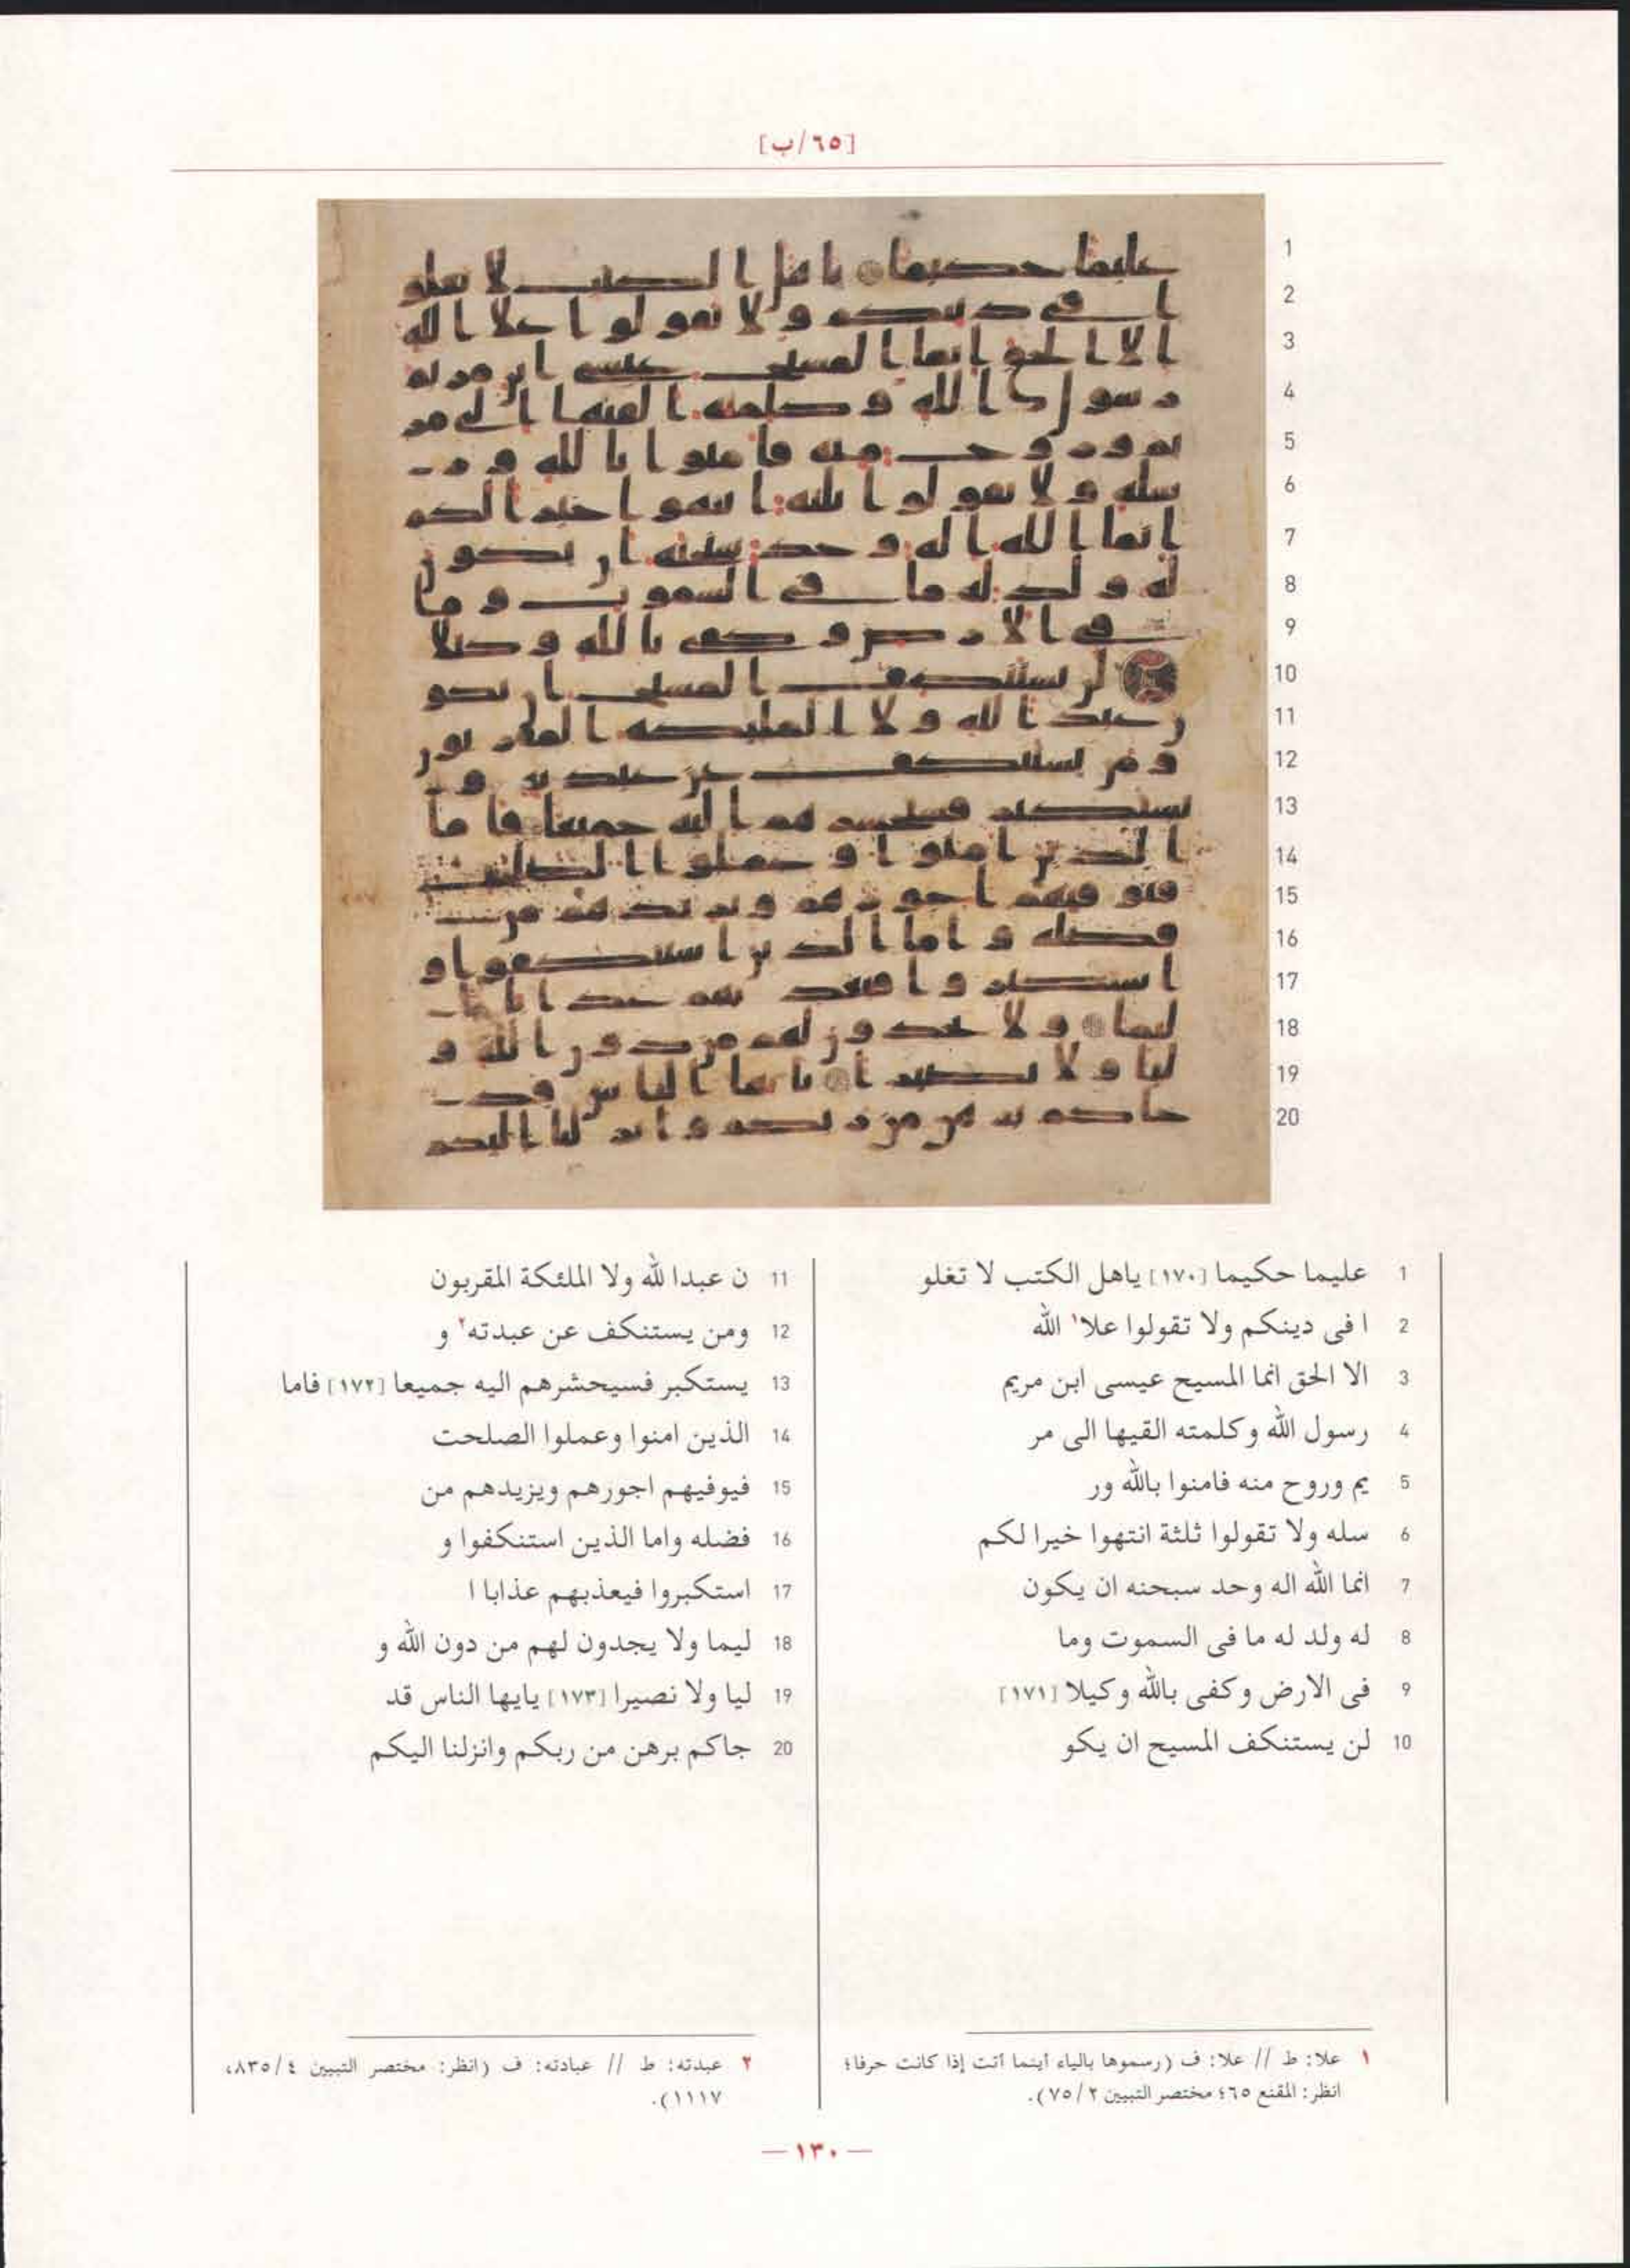 [٦٥/ب]
1 عليما حكيما [١٧٠] ياهل الكتب لا تغلو
2 ا فى دينكم ولا تقولوا علا١ الله
3 الا الحق انما المسيح عيسى ابن مريم
4 رسول الله وكلمته القيها الى مر
5 يم وروح منه فامنوا بالله ور
6 سله ولا تقولوا ثلثة انتهوا خيرا لكم
7 انما الله اله وحد سبحنه ان يكون
8 له ولد له ما فى السموت وما
9 فى الارض وكفى بالله وكيلا [١٧١]
10 لن يستنكف المسيح ان يكو
11 ن عبدا لله ولا الملئكة المقربون
12 ومن يستنكف عن عبدته٢ و
13 يستكبر فسيحشرهم اليه جميعا [١٧٢] فاما
14 الذين امنوا وعملوا الصلحت
15 فيوفيهم اجورهم ويزيدهم من
16 فضله واما الذين استنكفوا و
17 استكبروا فيعذبهم عذابا ا
18 ليما ولا يجدون لهم من دون الله و
19 ليا ولا نصيرا [١٧٣] يايها الناس قد
20 جاكم برهن من ربكم وانزلنا اليكم
١ علا: ط // علا: ف (رسموها بالياء أينما أتت إذا كانت حرفا؛
انظر: المقنع ٦٥؛ مختصر التبيين ٧٥/٢).
٢ عبدته: ط // عبادته: ف (انظر: مختصر التبيين ٨٣٥/٤،
١١١٧).
— ١٣٠ —